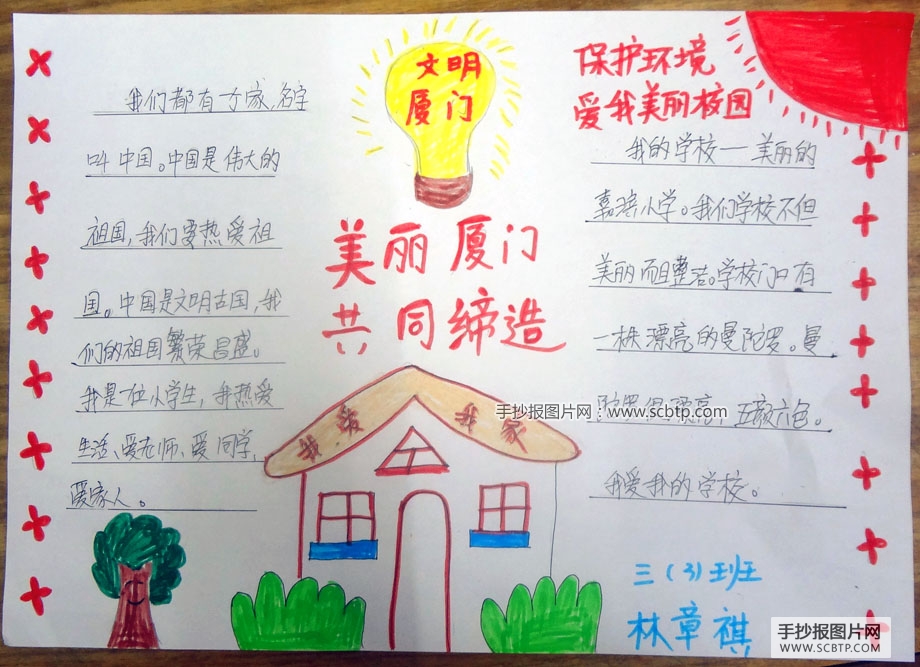 我们都有一个家,名字
叫中国。中国是伟大的
祖国,我们要热爱祖
国。中国是文明古国,我
们的祖国繁荣昌盛。
我是一位小学生,我热爱
生活、爱老师、爱同学,
爱家人。
文明
厦门
美丽厦门
共同缔造
我爱我家
保护环境
爱我美丽校园
我的学校一美丽的
小学。我们学校不但
美丽而且整洁。学校门口有
一株漂亮的曼陀罗。曼
陀罗很漂亮,五颜六色。
我爱我的学校。
手抄报图片网:www.scbtp.com
三(3)班
林章祺
手抄报图片网
WWW.SCBTP.COM